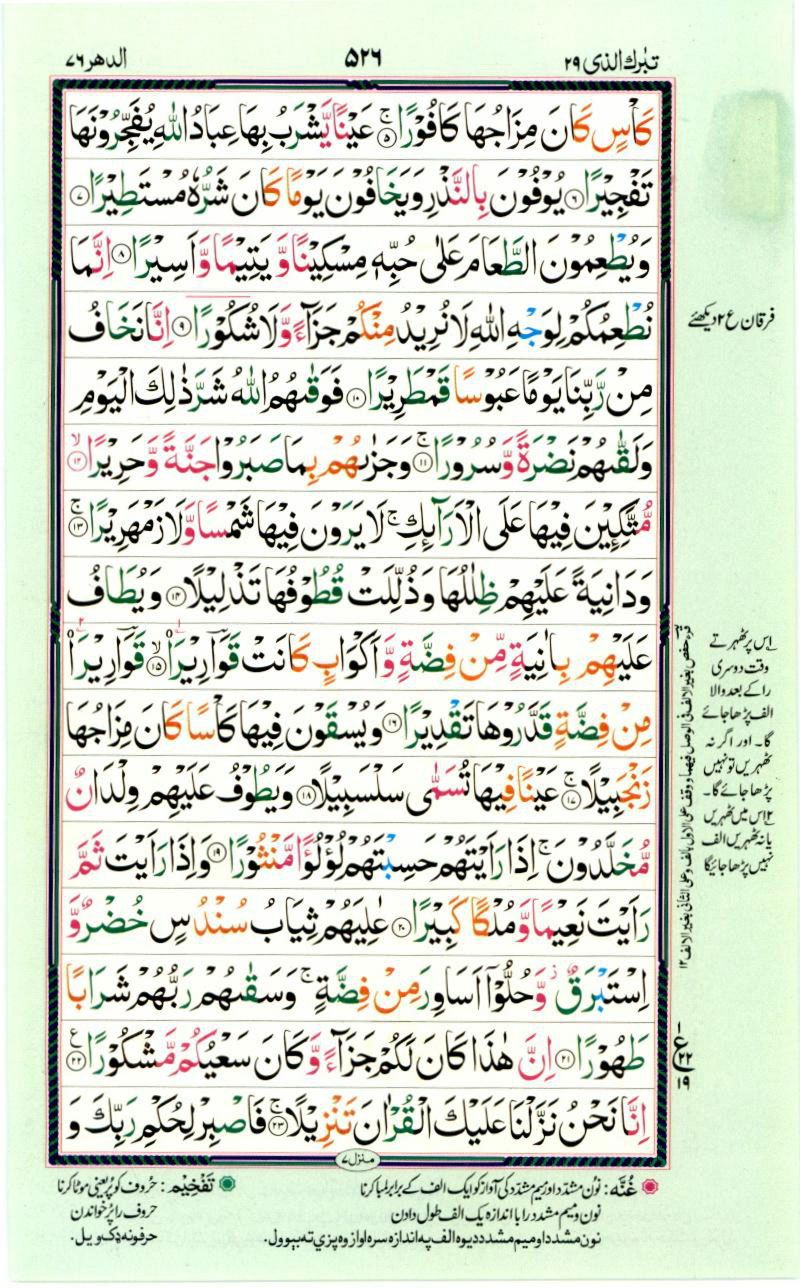 تبٰرك الذى ٢٩
٥٢٦
الدهر ٧٦
كَاْسٍ كَانَ مِزَاجُهَا كَافُوْرًا ۚ ۝٥ عَيْنًا يَّشْرَبُ بِهَا عِبَادُ اللّٰهِ يُفَجِّرُوْنَهَا
تَفْجِيْرًا ۝٦ يُوْفُوْنَ بِالنَّذْرِ وَيَخَافُوْنَ يَوْمًا كَانَ شَرُّهٗ مُسْتَطِيْرًا ۝٧
وَيُطْعِمُوْنَ الطَّعَامَ عَلٰى حُبِّهٖ مِسْكِيْنًا وَّيَتِيْمًا وَّاَسِيْرًا ۝٨ اِنَّمَا
نُطْعِمُكُمْ لِوَجْهِ اللّٰهِ لَا نُرِيْدُ مِنْكُمْ جَزَآءً وَّلَا شُكُوْرًا ۝٩ اِنَّا نَخَافُ
مِنْ رَّبِّنَا يَوْمًا عَبُوْسًا قَمْطَرِيْرًا ۝١٠ فَوَقٰىهُمُ اللّٰهُ شَرَّ ذٰلِكَ الْيَوْمِ
وَلَقّٰىهُمْ نَضْرَةً وَّسُرُوْرًا ۚ ۝١١ وَجَزٰىهُمْ بِمَا صَبَرُوْا جَنَّةً وَّحَرِيْرًا ۙ ۝١٢
مُّتَّكِـِٕيْنَ فِيْهَا عَلَى الْاَرَآىِٕكِ ۚ لَا يَرَوْنَ فِيْهَا شَمْسًا وَّلَا زَمْهَرِيْرًا ۚ ۝١٣
وَدَانِيَةً عَلَيْهِمْ ظِلٰلُهَا وَذُلِّلَتْ قُطُوْفُهَا تَذْلِيْلًا ۝١٤ وَيُطَافُ
عَلَيْهِمْ بِاٰنِيَةٍ مِّنْ فِضَّةٍ وَّاَكْوَابٍ كَانَتْ قَوَارِيْرَا۠ ۝١٥ قَوَارِيْرَا۠
مِنْ فِضَّةٍ قَدَّرُوْهَا تَقْدِيْرًا ۝١٦ وَيُسْقَوْنَ فِيْهَا كَاْسًا كَانَ مِزَاجُهَا
زَنْجَبِيْلًا ۚ ۝١٧ عَيْنًا فِيْهَا تُسَمّٰى سَلْسَبِيْلًا ۝١٨ وَيَطُوْفُ عَلَيْهِمْ وِلْدَانٌ
مُّخَلَّدُوْنَ ۚ اِذَا رَاَيْتَهُمْ حَسِبْتَهُمْ لُؤْلُؤًا مَّنْثُوْرًا ۝١٩ وَاِذَا رَاَيْتَ ثَمَّ
رَاَيْتَ نَعِيْمًا وَّمُلْكًا كَبِيْرًا ۝٢٠ عٰلِيَهُمْ ثِيَابُ سُنْدُسٍ خُضْرٌ وَّ
اِسْتَبْرَقٌ ۫ وَّحُلُّوْۤا اَسَاوِرَ مِنْ فِضَّةٍ ۚ وَسَقٰىهُمْ رَبُّهُمْ شَرَابًا
طَهُوْرًا ۝٢١ اِنَّ هٰذَا كَانَ لَكُمْ جَزَآءً وَّكَانَ سَعْيُكُمْ مَّشْكُوْرًا ۝٢٢
اِنَّا نَحْنُ نَزَّلْنَا عَلَيْكَ الْقُرْاٰنَ تَنْزِيْلًا ۚ ۝٢٣ فَاصْبِرْ لِحُكْمِ رَبِّكَ وَ
منزل ٧
فرقان ع ٢ دیکھئے
١ اس پر ٹھہرتے
وقت دوسری
را کے بعد والا
الف پڑھا جائے
گا۔ اور اگر نہ
ٹھہریں تو نہیں
پڑھا جائے گا۔
٢ اس میں ٹھہریں
یا نہ ٹھہریں الف
نہیں پڑھا جائیگا
قرء حفص بغیر الالف فی الوصل فیهما ووقف علی الاول بالف وعلی الثانی بغیر الالف ١٢
ع
٢٢
١٩
غُنَّه: نون مشدد اور میم مشدد کی آواز کو ایک الف کے برابر لمبا کرنا
نون و میم مشدد را با اندازه یک الف طول دادن
نون مشدد او میم مشدد دیوه الف په اندازه سره اواز وه پزې ته بېوول.
تَفْخِيْم: حروف کو پُر یعنی موٹا کرنا
حروف را پُر خواندن
حرفونه ډک ویل.